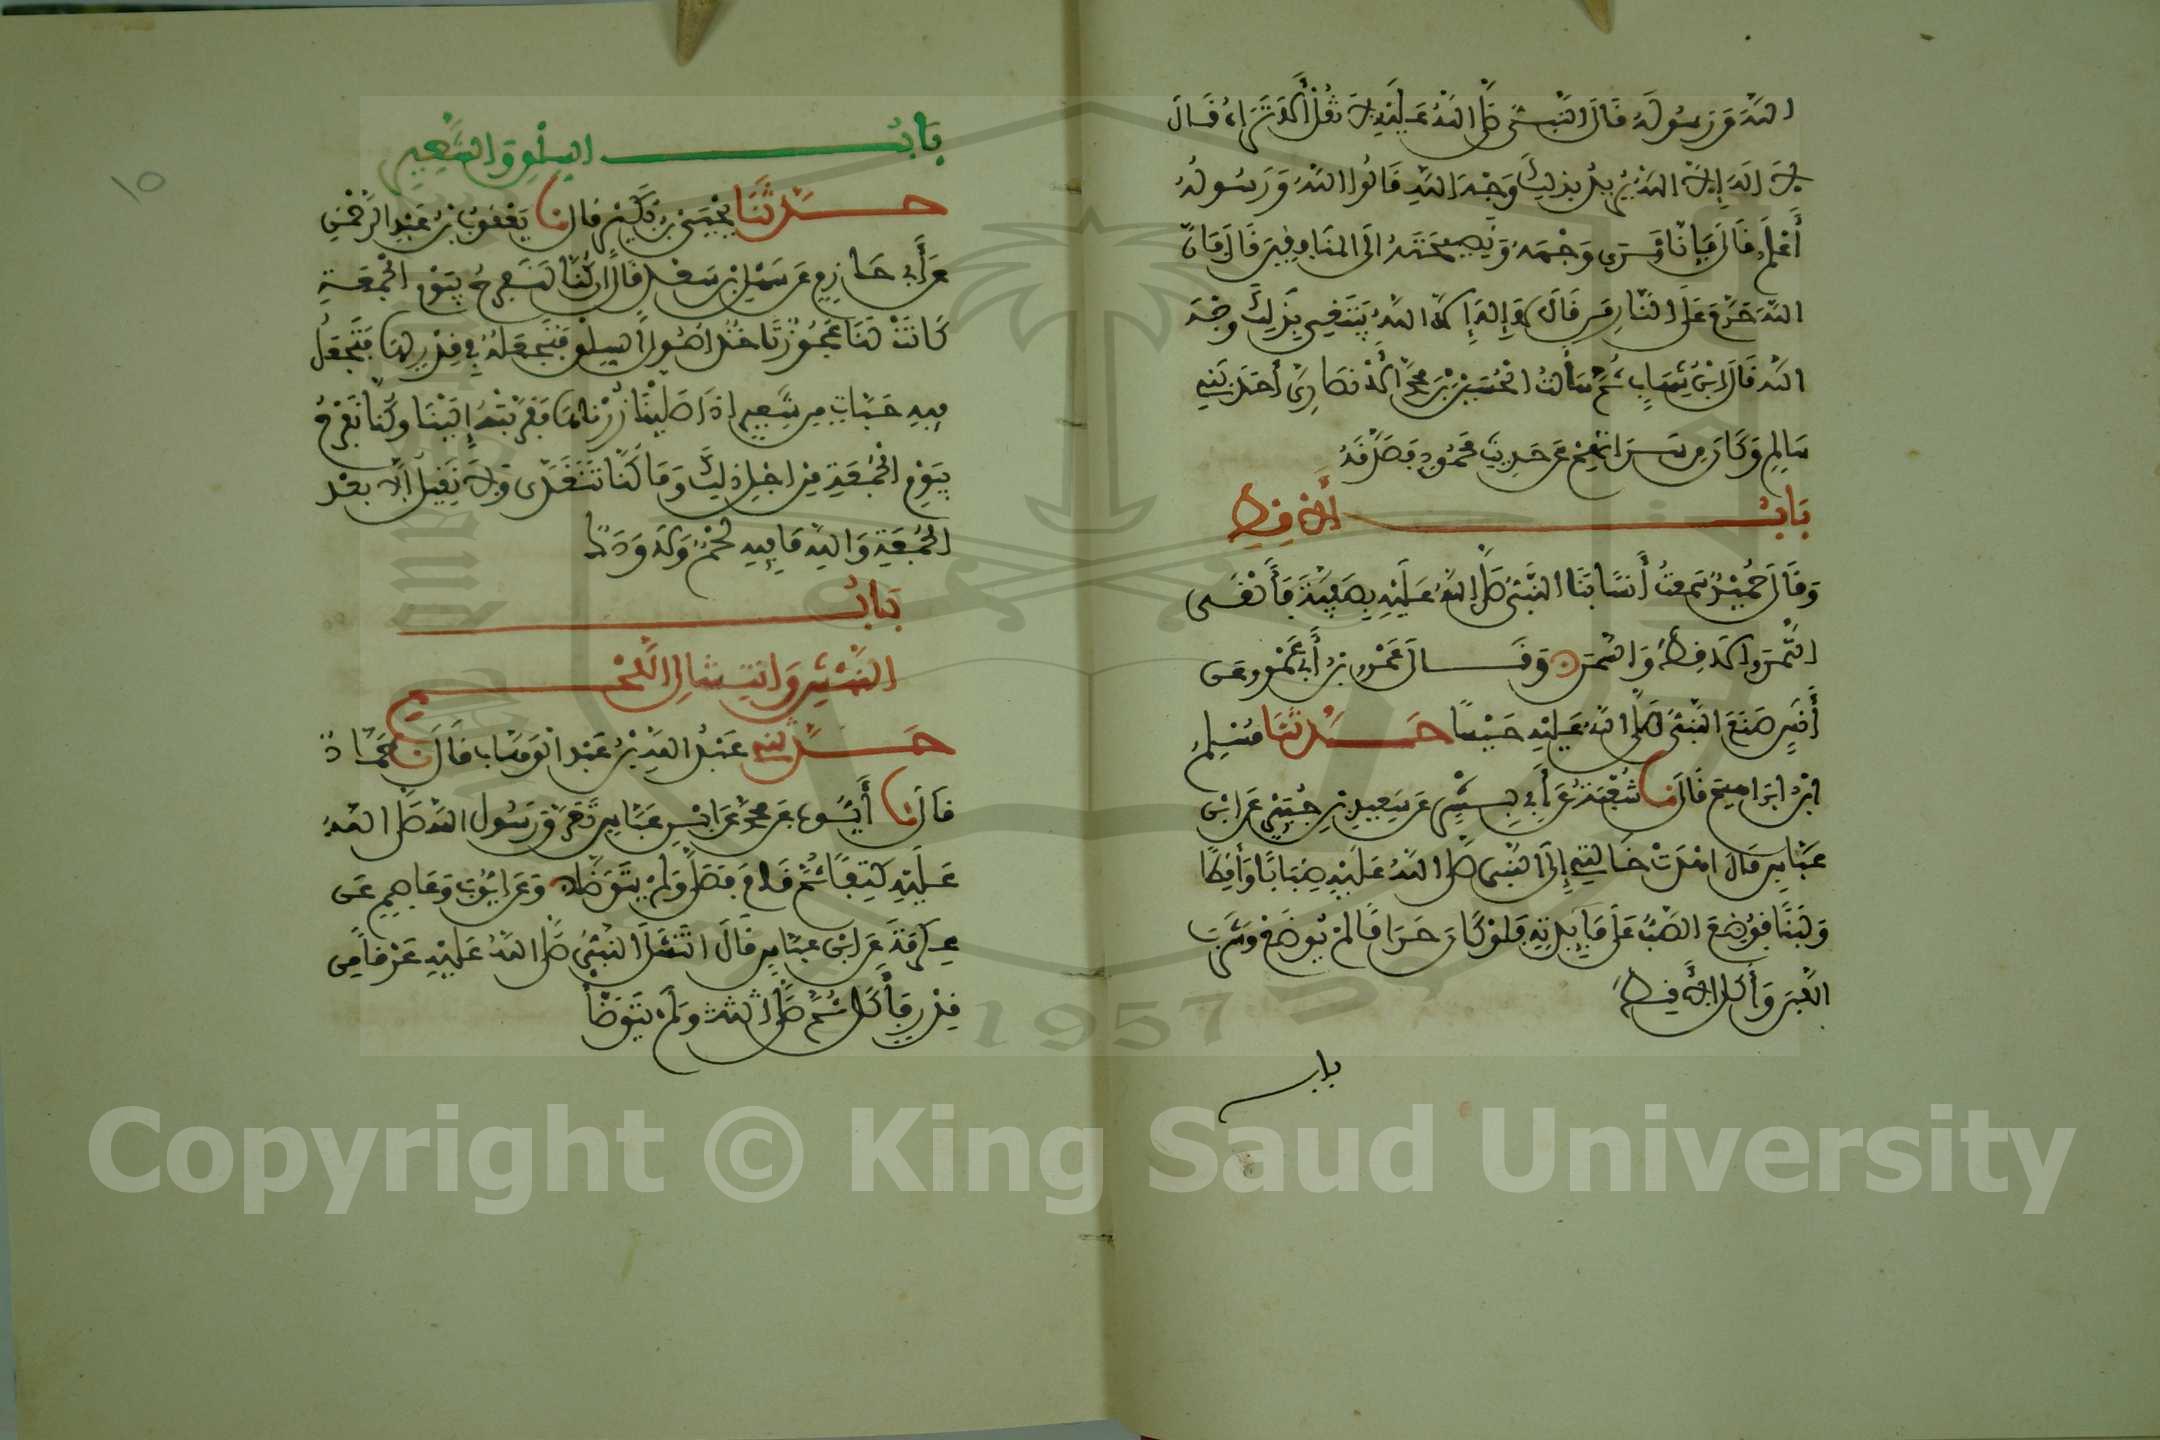 الله ورسوله قال النبي صلى الله عليه لا تقل ألا تراه قال
لا اله إلا الله يريد بذلك وجه الله قالوا الله ورسوله
أعلم قال فإنا نرى وجهه ونصيحته الى المنافقين قال فإن
الله حرم على النار من قال لا إله إلا الله يبتغي بذلك وجه
الله قال ابن شهاب ثم سألت الحصين بن محمد الأنصاري أحد بني
سالم وكان من سراتهم عن حديث محمود فصدقه
باب الأقط
وقال حميد سمعت أنسا بنا النبي صلى الله عليه بصفية فألقى
التمر والأقط والسمن وقال عمرو بن أبي عمرو عن
أنس صنع النبي صلى الله عليه حيسا حدثنا مسلم
ابن ابراهيم قال نا شعبة عن أبي بشر عن سعيد بن جبير عن ابن
عباس قال اهدت خالتي إلى النبي صلى الله عليه ضبابا وأقطا
ولبنا فوضع الضب على مايدته فلو كان حراما لم يوضع وشرب
اللبن وأكل الأقط
باب
باب السلق والشعير
حدثنا يحيى بن بكير قال نا يعقوب بن عبد الرحمن
عن أبي حازم عن سهل بن سعد قال ان كنا لنفرح بيوم الجمعة
كانت لنا عجوز تاخذ اصول السلق فتجعله في قدر لها فتجعل
فيه حبات من شعير اذا صلينا زرناها فقربته إلينا وكنا نفرح
بيوم الجمعة من اجل ذلك وما كنا نتغدى ولا نقيل الا بعد
الجمعة والله ما فيه شحم ولا ودك
باب
النهش وانتشال اللحم
حدثني عبد الله بن عبد الوهاب قال نا حماد
قال نا أيوب عن محمد عن ابن عباس تعرق رسول الله صلى الله
عليه كتفا ثم قام فصلى ولم يتوضأ وعن ايوب وعاصم عن
عكرمة عن ابن عباس قال انتشل النبي صلى الله عليه عرقا من
قدر فأكل ثم صلى ولم يتوضأ
١٥
1957
Copyright © King Saud University